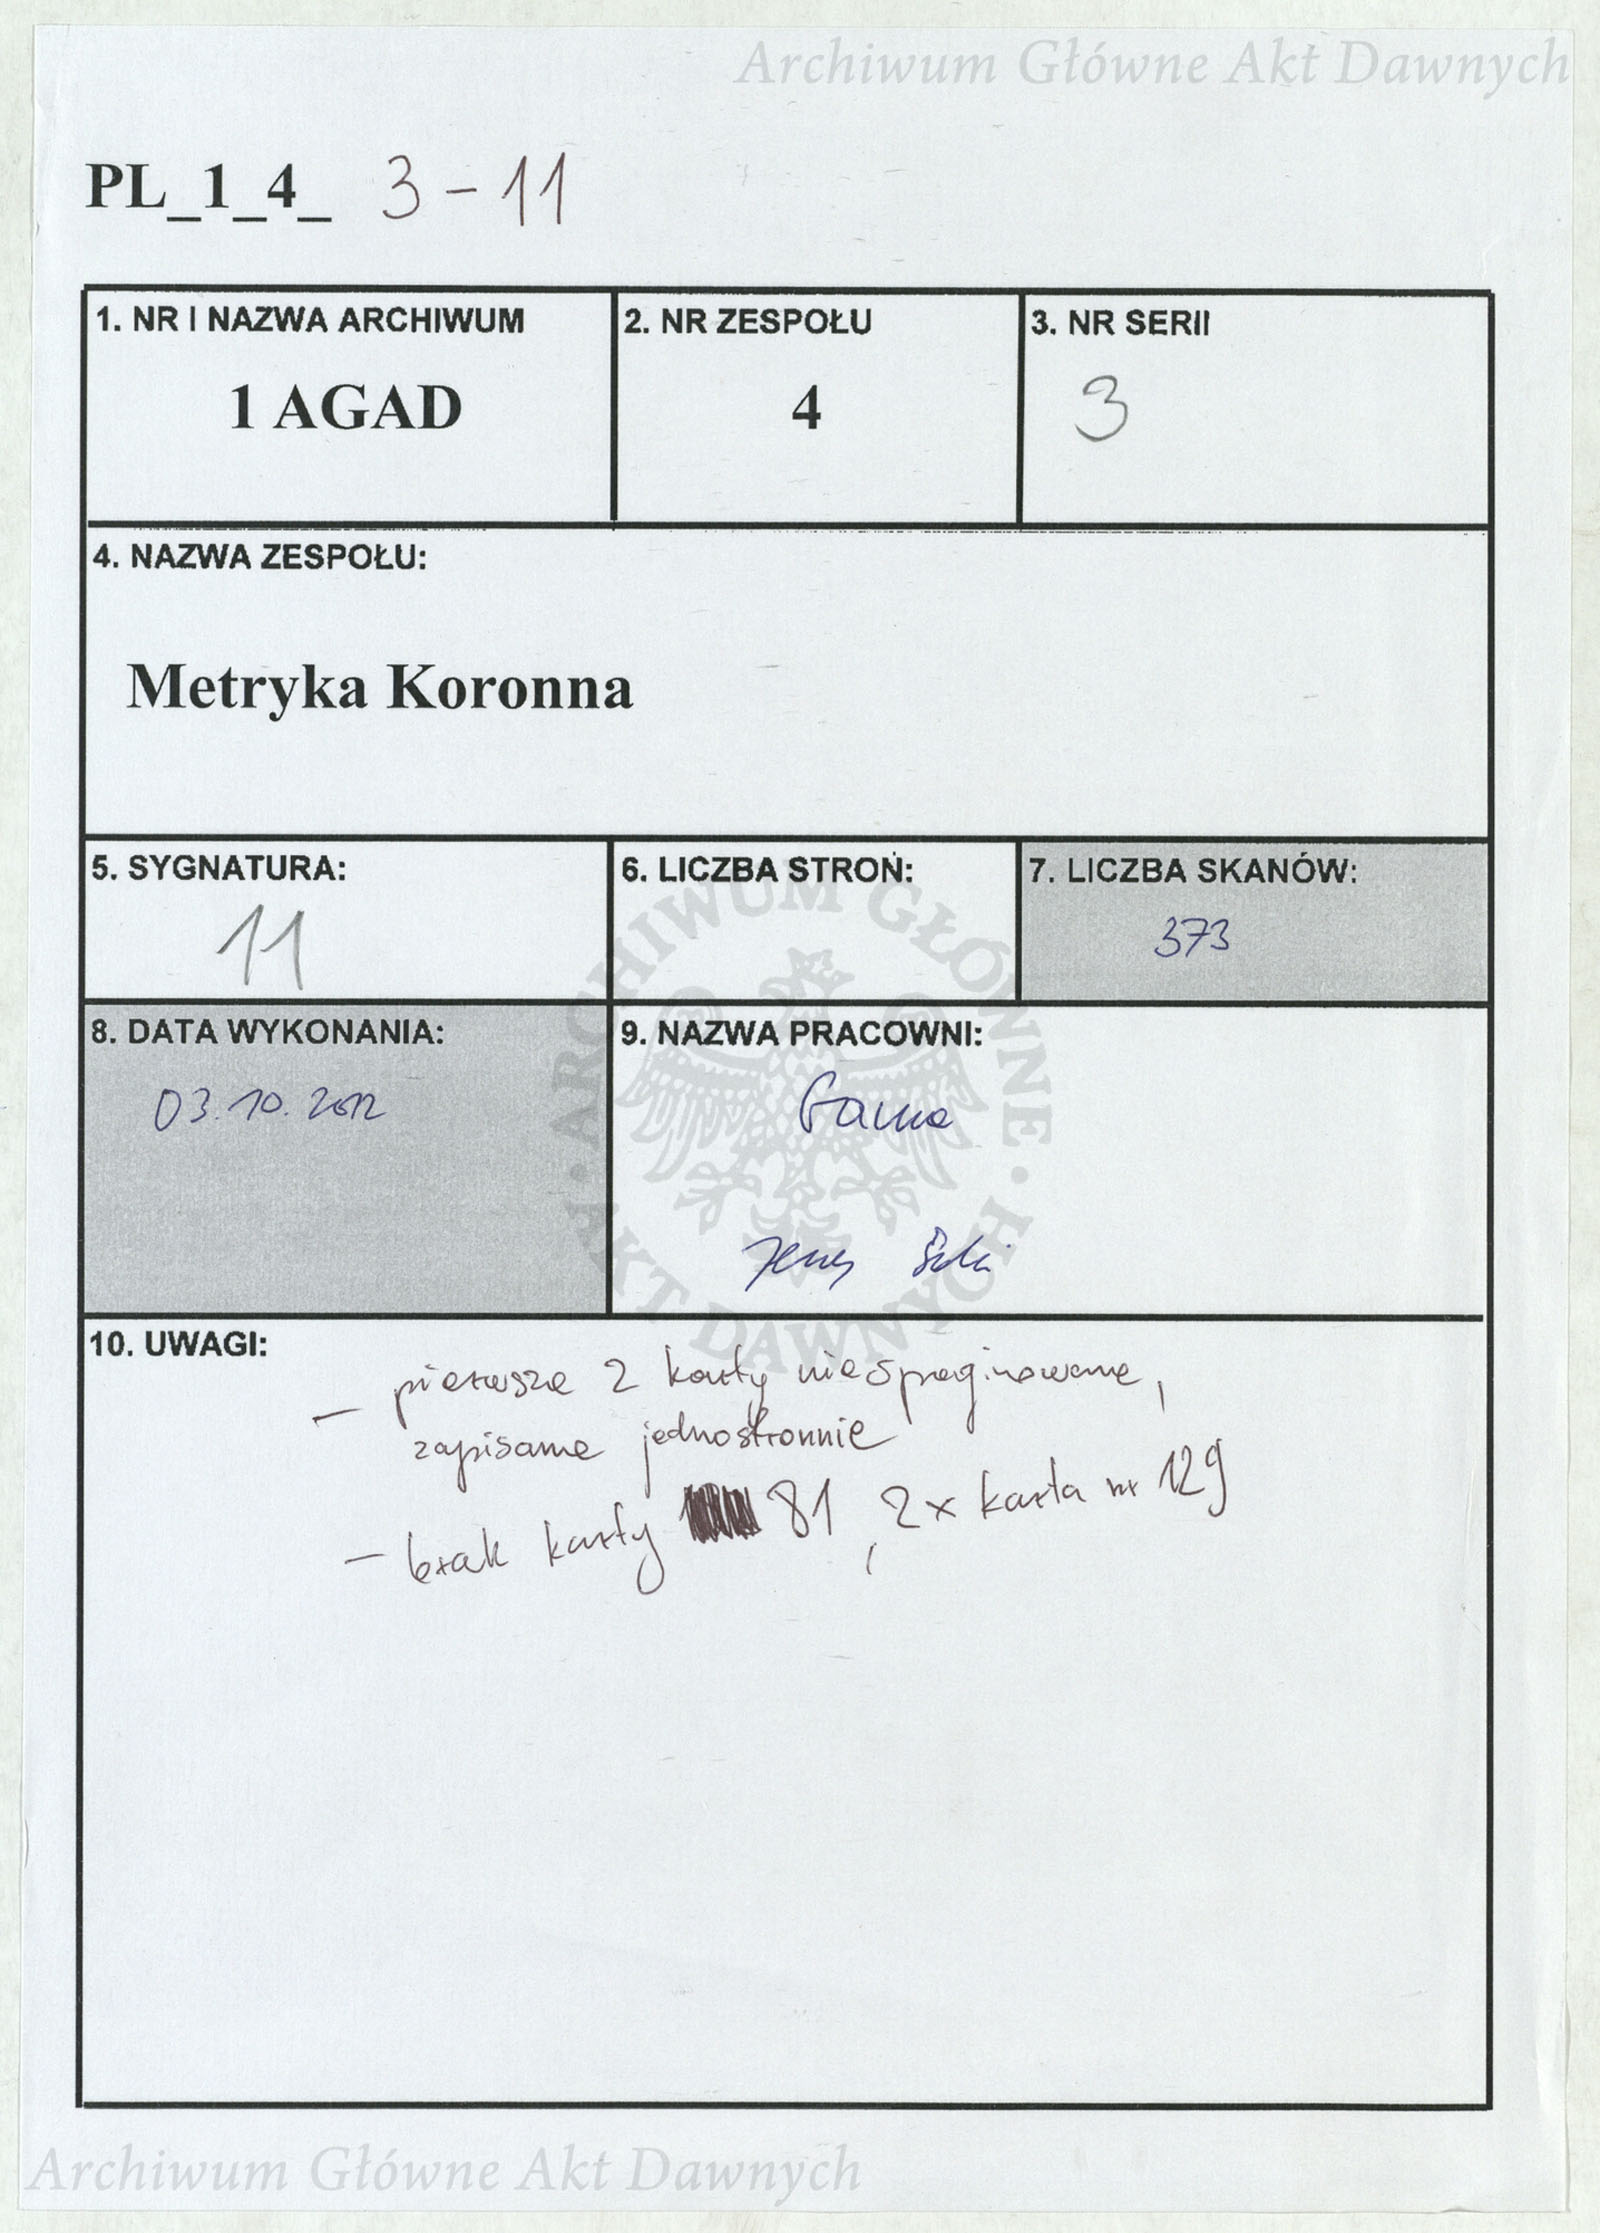 Archiwum Główne Akt Dawnych
PL_1_4_ 3-11
1. NR I NAZWA ARCHIWUM
1 AGAD
2. NR ZESPOŁU
4
3. NR SERII
3
4. NAZWA ZESPOŁU:
Metryka Koronna
5. SYGNATURA:
11
6. LICZBA STRON:
7. LICZBA SKANÓW:
373
8. DATA WYKONANIA:
03.10.2012
9. NAZWA PRACOWNI:
10. UWAGI:
– pierwsze 2 karty niespaginowane,
zapisane jednostronnie
– brak karty 81, 2x karta nr 129
ARCHIWUM GŁÓWNE
AKT DAWNYCH
Archiwum Główne Akt Dawnych